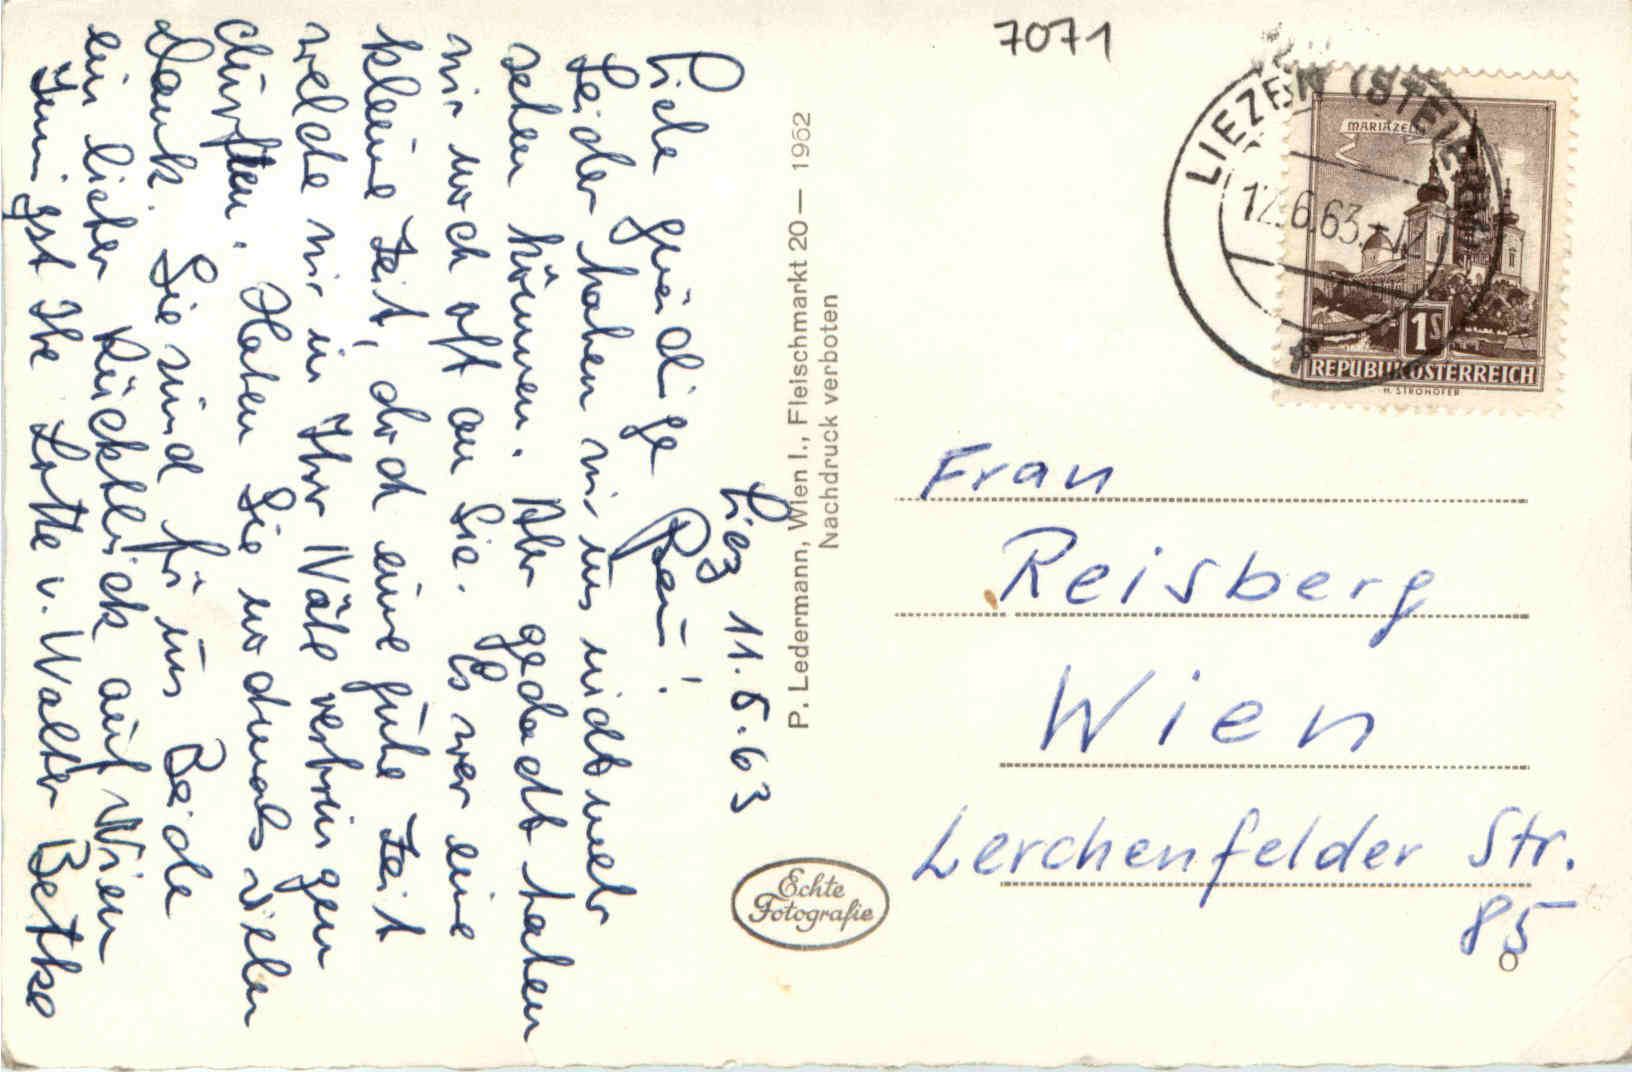 7071
LIEZEN (STEIERM.)
12.6.63
MARIAZELL
1S
REPUBLIK ÖSTERREICH
H. STROHOFER
Liez 11.6.63
Liebe gnädige Frau!
Leider haben wir uns nicht mehr
sehen können. Aber gedacht haben
wir noch oft an Sie. Es war eine
kleine Zeit, doch eine gute Zeit
welche wir in Ihrer Nähe verbringen
durften. Haben Sie nochmals vielen
Dank. Sie sind für uns Beide
ein lieber Rückblick auf Wien
Innigst Ihre Lotte u. Walter Betke
P. Ledermann, Wien I., Fleischmarkt 20 — 1962
Nachdruck verboten
Echte
Fotografie
Frau
Reisberg
Wien
Lerchenfelder Str.
85